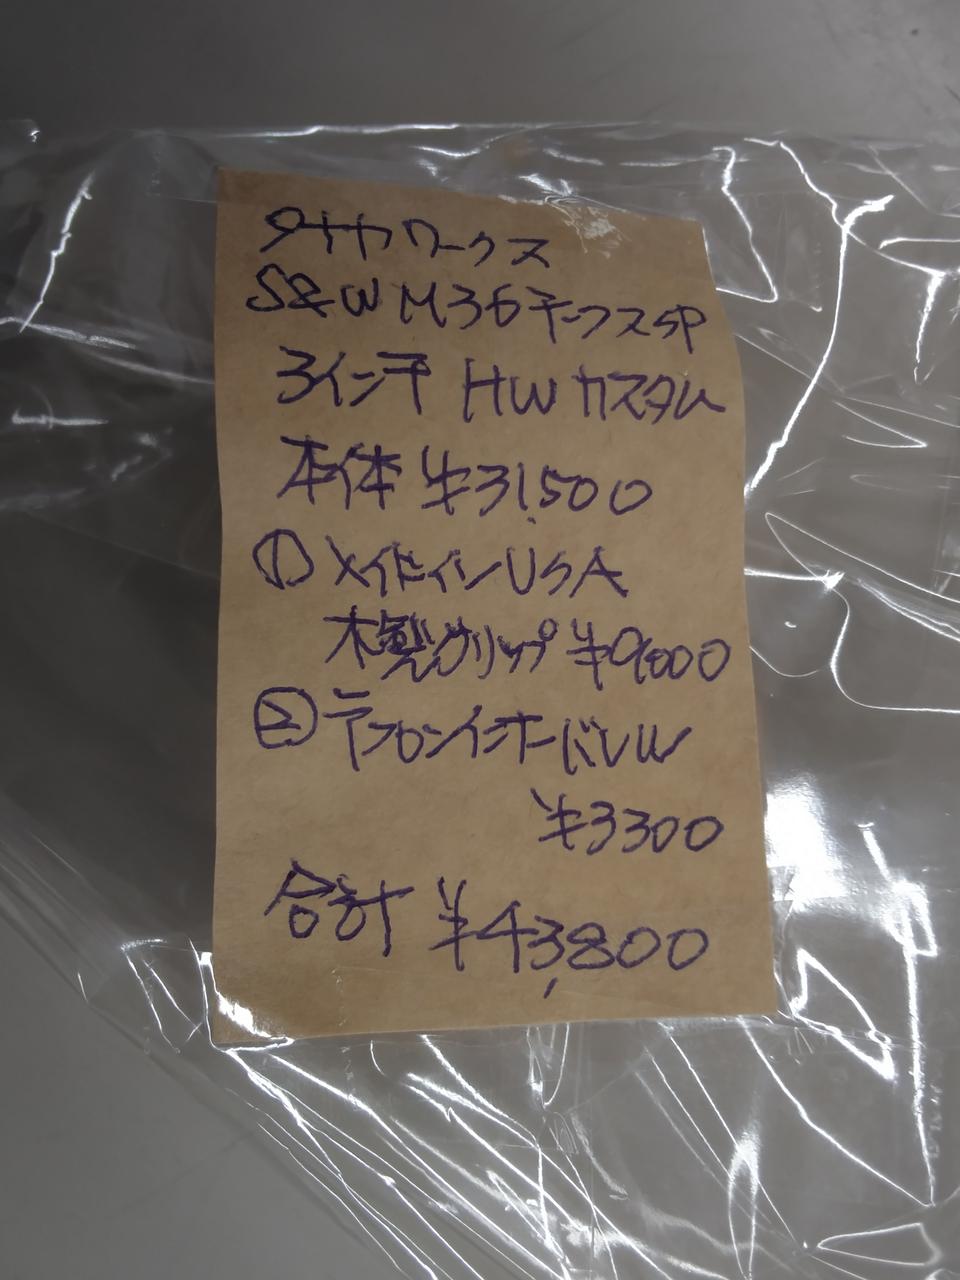 タナカワークス
S&W M36チーフスSP
3インチ HWカスタム
本体 ¥31,500
① メイドインUSA
木製グリップ ¥9000
② テフロンインナーバレル
¥3300
合計 ¥43,800